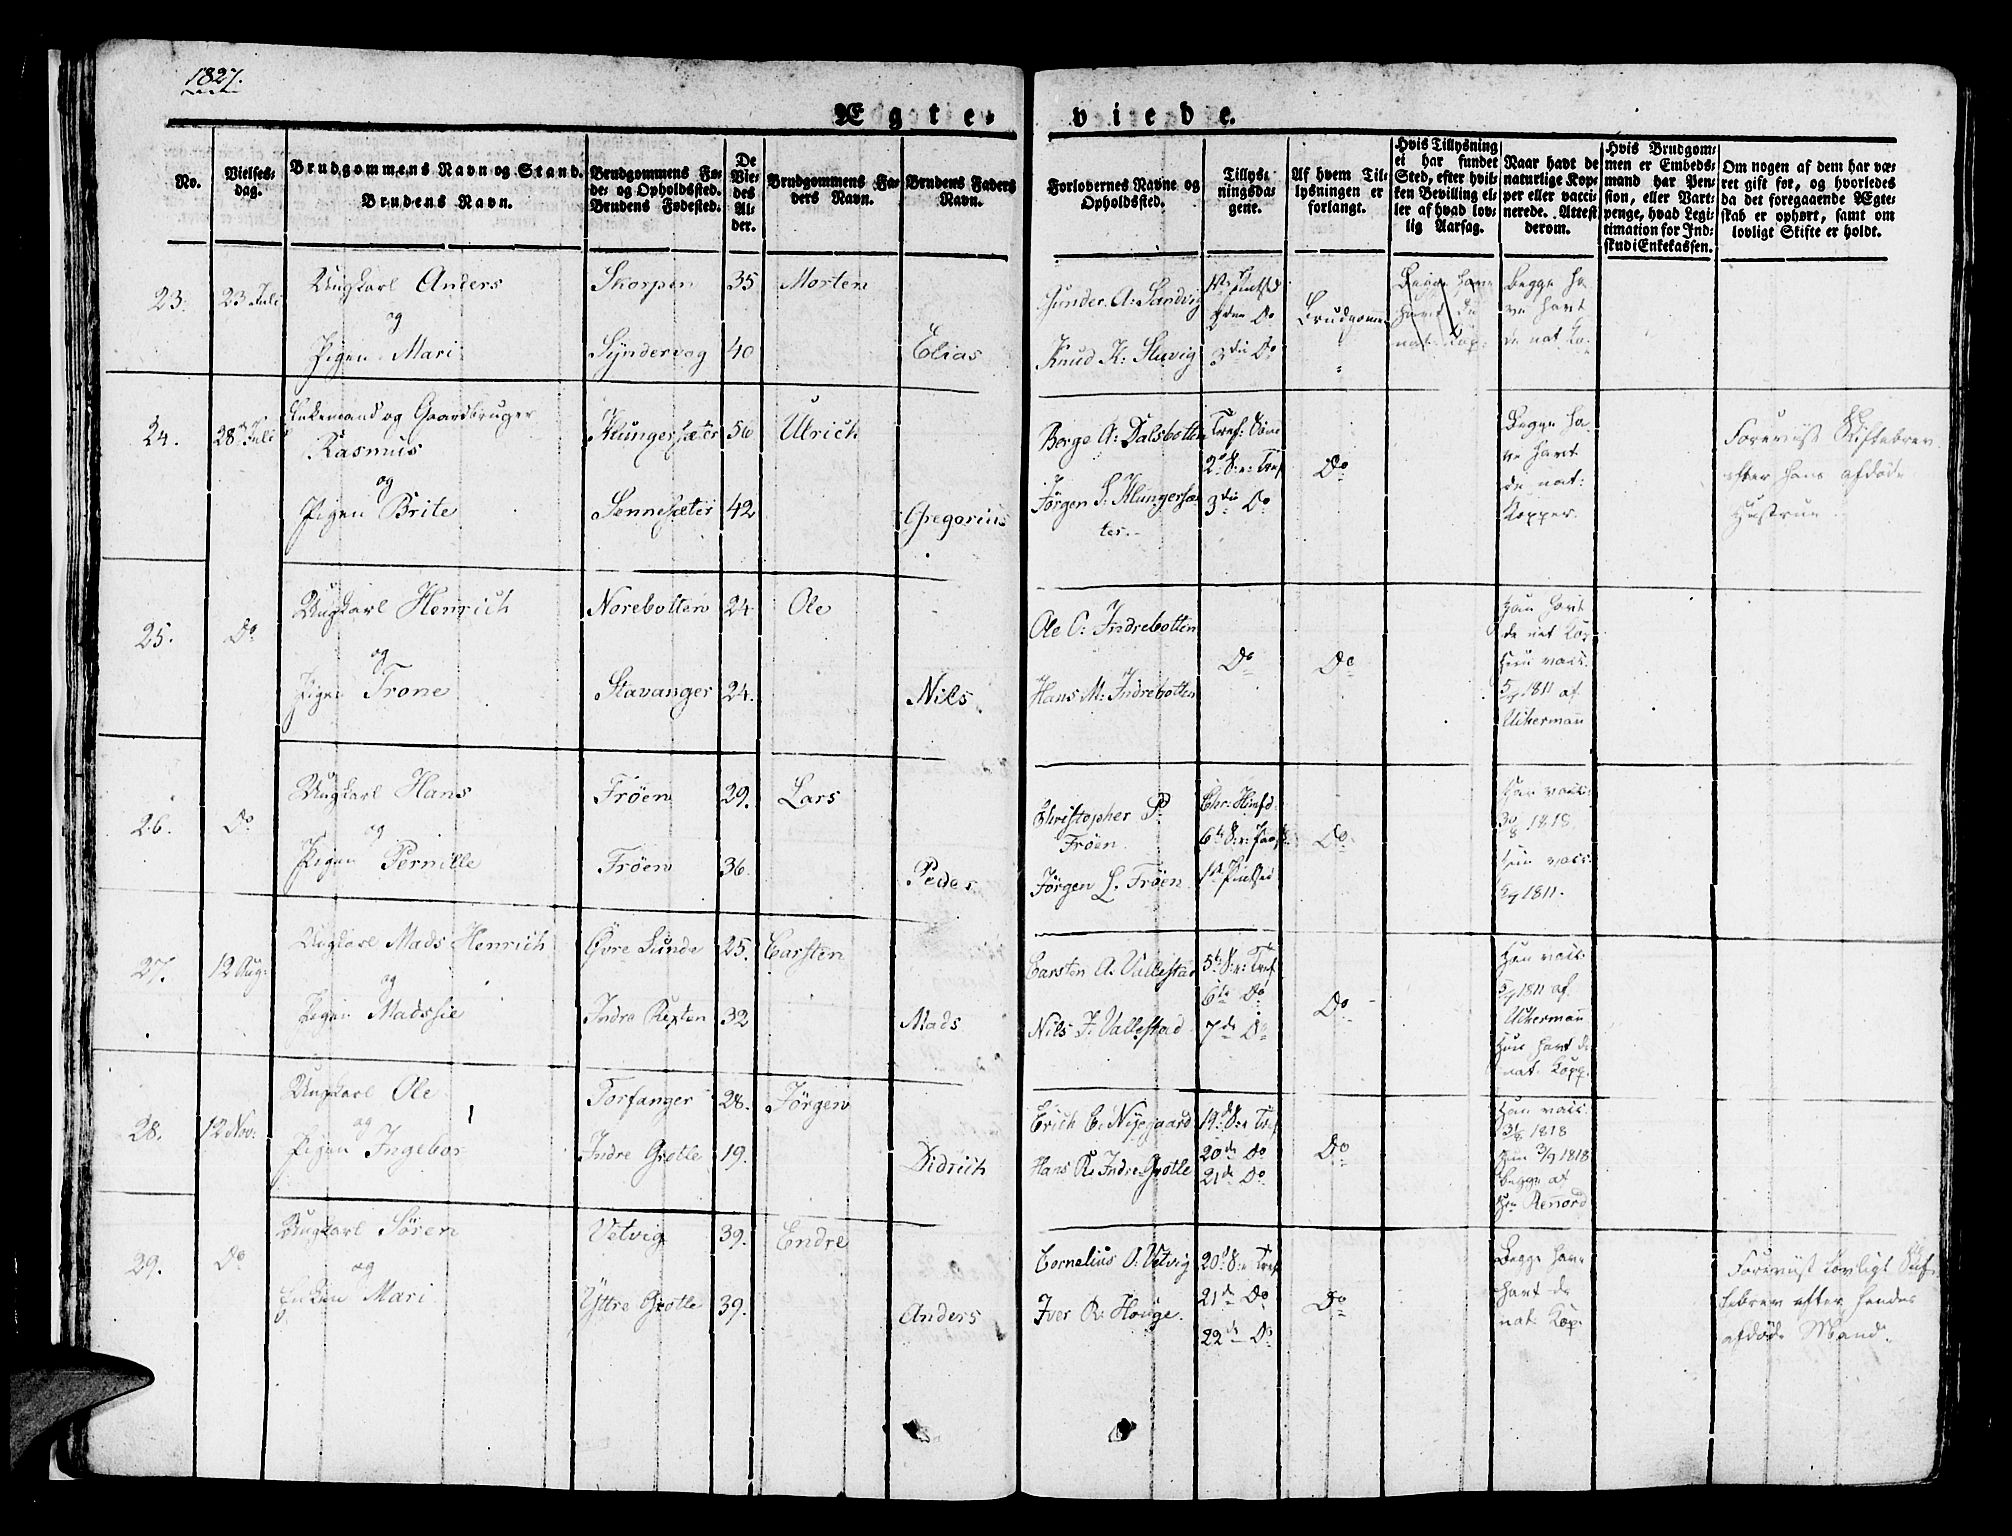 1827.
Ægteviede.
No.
Vielses-
dag.
Brudgommens Navn og Stand.
Brudens Navn.
Brudgommens Fø-
de- og Opholdssted.
Brudens Fødested.
De
Vie-
des
Al-
der.
Brudgommens Fa-
ders Navn.
Brudens Faders
Navn.
Forlovernes Navne og
Opholdssted.
Tillys-
ningsda-
gene.
Af hvem Til-
lysningen er
forlangt.
Hvis Tillysning
ei har fundet
Sted, efter hvil-
ken Bevilling el-
ler af hvad lov-
lig Aarsag.
Naar havt de
naturlige Kop-
per eller vacci-
nerede. Attest
derom.
Hvis Brudgom-
men er Embeds-
mand har Pen-
sion, eller Vart-
penge, hvad Legi-
timation for Ind-
skud i Enkekassen.
Om nogen af dem har væ-
ret gift før, og hvorledes
da det foregaaende Ægte-
skab er ophørt, samt om
lovligt Skifte er holdt.
23. 23 Juli
Ungkarl Anders
og
Pigen Mari
Skorpen 35 Morten
Syndervog 40 Elias
Gunder A: Sandvig
Knud K: Sluvig
3die Do
Brudgommen
Begge have
havt de
nat. Kop.
Begge ha-
ve havt
de nat Ko-
24. 28 Juli
Enkemand og Gaardbruger
Rasmus
og
Pigen Brite
Klungersæter 56 Ulrich
Sennesæter 42 Gregorius
Borge A: Dalsbotten
Jørgen S. Klungersæ-
ter.
2d S: e: Tref
3die Do
Do
Begge ha-
ve havt
de nat:
Kopper.
Foreviist Skiftebrev
efter hans afdøde
Hustrue
25. Do
Ungkarl Henrich
og
Pigen Trone
Norebotten 24 Ole
Stavanger 24. Nils
Ole O: Indrebotten
Hans M: Indrebotten
Do
Do
Han havt
de nat Kop
Hun vacc.
1811 af
Uckerman
26. Do
Ungkarl Hans
og
Pigen Pernille
Frøen 29. Lars
Frøen 36. Peder
Christopher P.
Frøen
Jørgen L. Frøen
Chr: Himfd.
Do
Han vacc.
30/8 1818
Hun vacc.
1811.
27. 12 Aug:
Ungkarl Mads Henrich
og
Pigen Madssie
Øvre Lunde 25. Carsten
Indre Rixten 32 Mads
Carsten A. Vallestad
Nils J. Vallestad
5te S: e: Tref
6te Do
7de Do
Do
Han vacc.
1811 af
Uckerman
Hun havt de
nat. Kopp.
28. 12 Nov:
Ungkarl Ole
og
Pigen Ingebor
Torfanger 28. Jørgen
Indre Grotle 19. Didrich
Erich E: Nygaard
Hans R: Indre Grotle
19de S: e Tref
20de Do
21de Do
Do
Han vacc.
31/8 1818
Hun 3/9 1818
begge af
Hr. Rennord
29. Do
Ungkarl Søren
og
Enken Mari
Vetvig 39. Endre
Yttre Grotle 39. Anders
Cornelius O: Vetvig
Iver R: Houge.
20de S: e Tref
21de Do
22de Do
Do
Begge have
havt de
nat. Kop.
Foreviist lovligt Skif-
tebrev efter hendes
afdøde Mand.